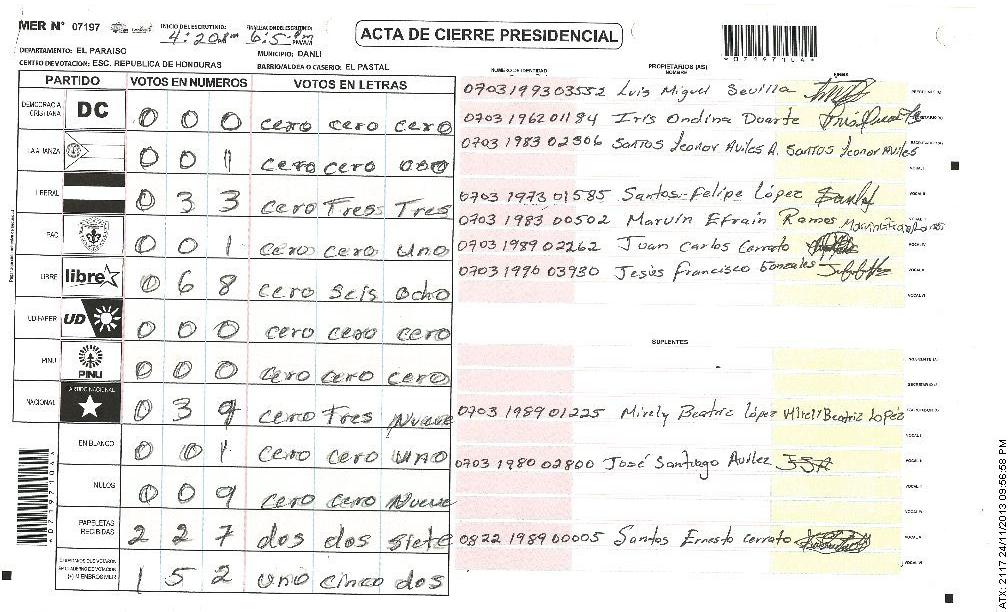 MER N° 07197
INICIO DEL ESCRUTINIO: 4:20 P.M
FINALIZACION DEL ESCRUTINIO: 6:5 PM
ACTA DE CIERRE PRESIDENCIAL
DEPARTAMENTO: EL PARAISO
MUNICIPIO: DANLI
CENTRO DE VOTACION: ESC. REPUBLICA DE HONDURAS
BARRIO/ALDEA O CASERIO: EL PASTAL
PARTIDO VOTOS EN NUMEROS VOTOS EN LETRAS
DEMOCRACIA CRISTIANA DC 0 0 0 cero cero cero
LA ALIANZA 0 0 1 cero cero uno
LIBERAL 0 3 3 cero Tres Tres
PAC 0 0 1 cero cero uno
LIBRE libre 0 6 8 cero seis ocho
UD FAPER UD 0 0 0 cero cero cero
PINU PINU 0 0 0 cero cero cero
NACIONAL PARTIDO NACIONAL 0 3 9 cero Tres Nueve
EN BLANCO 0 0 1 cero cero uno
NULOS 0 0 9 cero cero Nueve
PAPELETAS RECIBIDAS 2 2 7 dos dos siete
1 5 2 uno cinco dos
NUMERO DE IDENTIDAD
PROPIETARIOS (AS)
NOMBRE
FIRMA
0703199303552 Luis Miguel Sevilla
0703 1962 01184 Iris Ondina Duarte
0703 1983 02306 Santos Leonor Aviles A. Santos Leonor Aviles
0703 1973 01585 Santos Felipe López
0703 1983 00502 Marvin Efrain Ramos
0703 1989 02262 Juan Carlos Cerrato
0703 1990 03930 Jesús Francisco Gonzales
SUPLENTES
0703 1989 01225 Mirely Beatriz López Mireli Beatriz López
0703 1980 02800 José Santiago Avilez
0822 1989 00005 Santos Ernesto Cerrato
ATX: 2117 24/11/2013 09:56:58 PM